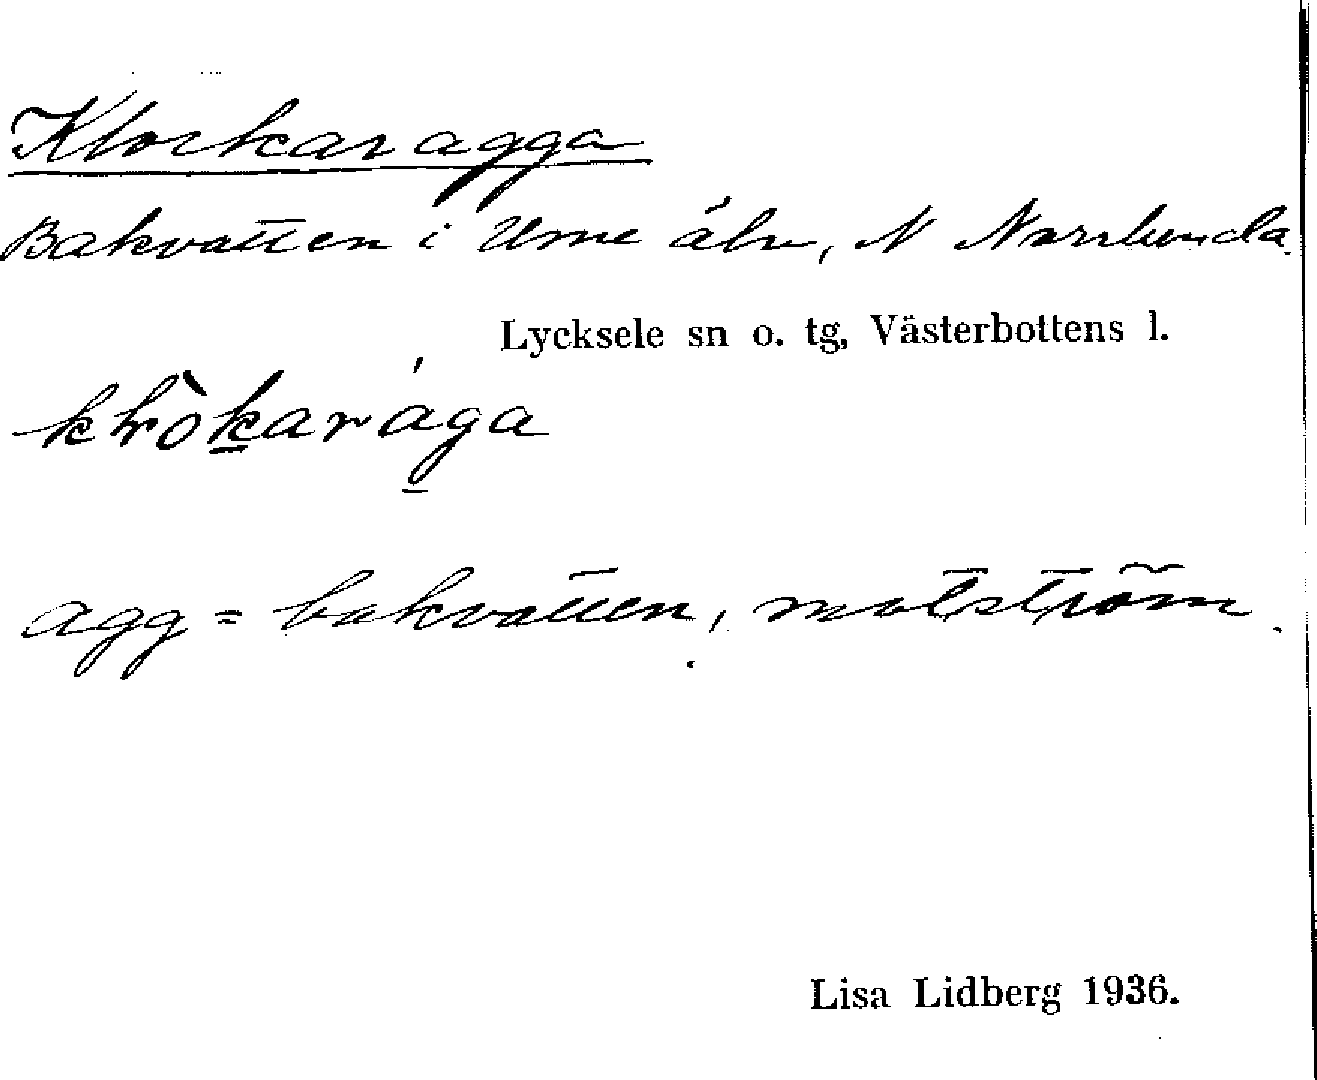 Klockaragga
Bakvatten i Ume älv, N Norrlunda
Lycksele sn o. tg, Västerbottens l.
agg = bakvatten, motström.
Lisa Lidberg 1936.